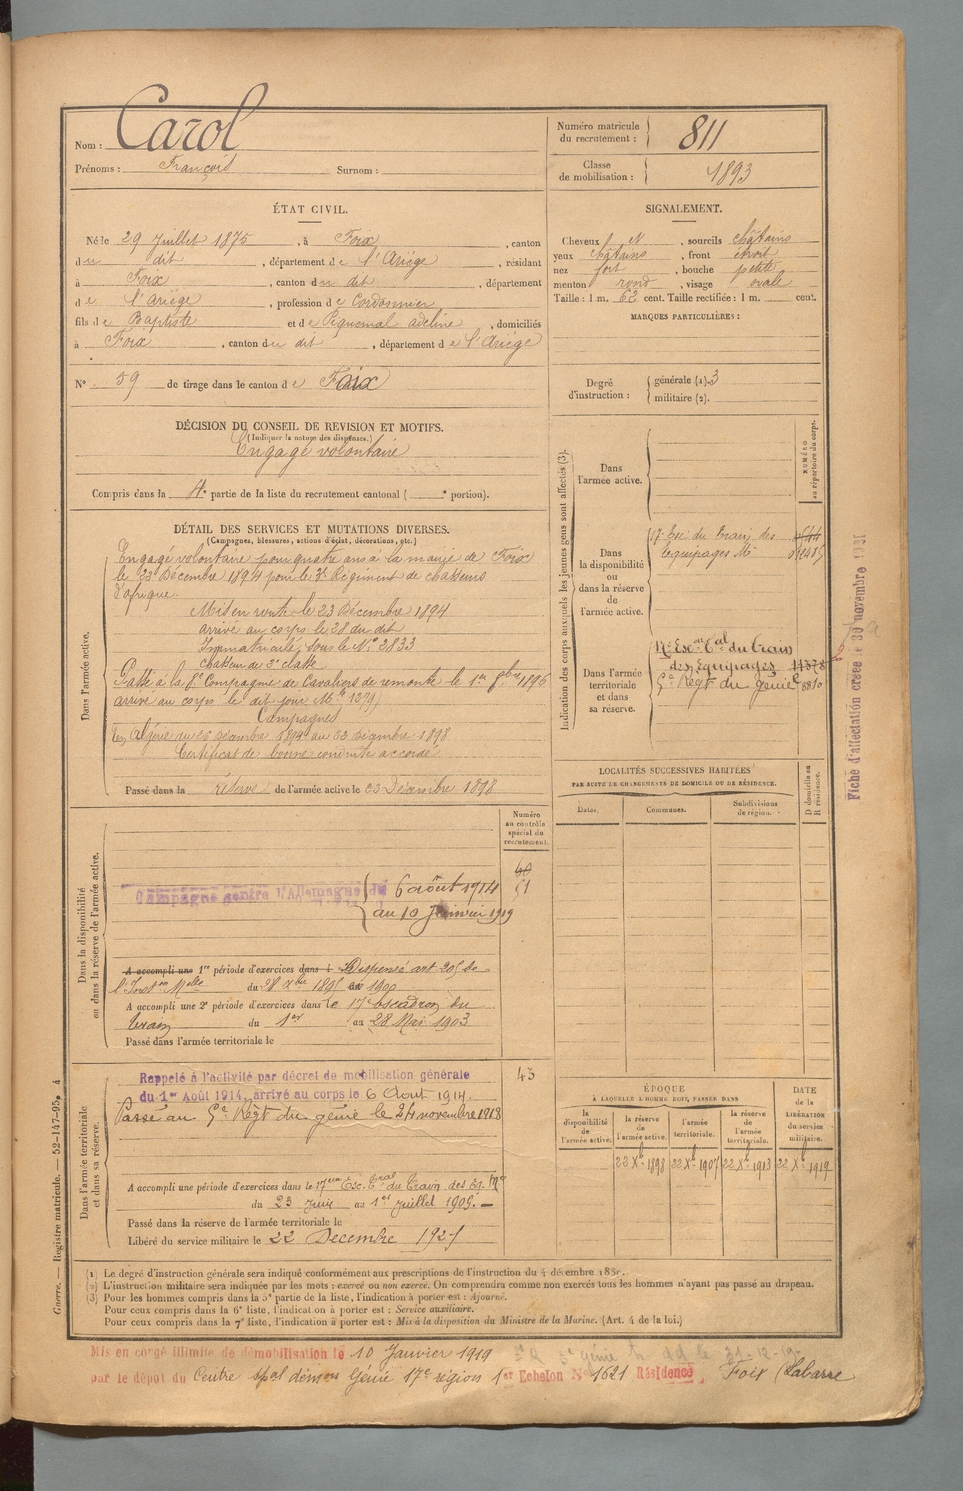 Nom : Carol
Prénoms : François Surnom :
Numéro matricule du recrutement : 811
Classe de mobilisation : 1893
ÉTAT CIVIL.
Né le 29 Juillet 1875, à Foix, canton
du dit, département de l'Ariège, résidant
à Foix, canton du dit, département
de l'Ariège, profession de Cordonnier
fils de Baptiste et de Piquemal Adeline, domiciliés
à Foix, canton du dit, département de l'Ariège
N° 59 de tirage dans le canton de Foix
SIGNALEMENT.
Cheveux N, sourcils châtains
yeux châtains, front étroit
nez fort, bouche petite
menton rond, visage ovale
Taille : 1 m. 62 cent. Taille rectifiée : 1 m. cent.
MARQUES PARTICULIÈRES :
Degré d'instruction : générale (1). 3
militaire (2).
DÉCISION DU CONSEIL DE REVISION ET MOTIFS.
(Indiquer la nature des dispenses.)
Engagé volontaire
Compris dans la 4e partie de la liste du recrutement cantonal ( e portion).
DÉTAIL DES SERVICES ET MUTATIONS DIVERSES.
(Campagnes, blessures, actions d'éclat, décorations, etc.)
Dans l'armée active.
Engagé volontaire pour quatre ans à la mairie de Foix
le 23 Décembre 1894 pour le 3e Régiment de chasseurs
d'afrique.
Mis en route le 23 Décembre 1894
arrivé au corps le 28 du dit
Immatriculé sous le No 2833
chasseur de 2e classe
Passé à la 8e Compagnie de Cavaliers de remonte le 1er 1896
arrivé au corps le dit jour Mle 1279
Campagnes
En Algérie du 26 décembre 1894 au 23 décembre 1898
Certificat de bonne conduite accordé
Passé dans la réserve de l'armée active le 23 Décembre 1898
Indication des corps auxquels les jeunes gens sont affectés (3).
NUMÉRO au répertoire du corps.
Dans l'armée active.
Dans la disponibilité ou dans la réserve de l'armée active.
17 Esc. du Train des
Equipages Mes
Dans l'armée territoriale et dans sa réserve.
17e Escon Cal du Train
des Equipages
5e Régt du génie
Fiche d'affectation créée le 30 novembre 1921
LOCALITÉS SUCCESSIVES HABITÉES
PAR SUITE DE CHANGEMENTS DE DOMICILE OU DE RÉSIDENCE.
Dates. Communes. Subdivisions de région. D domicile ou R résidence.
Dans la disponibilité ou dans la réserve de l'armée active.
Numéro au contrôle spécial du recrutement.
60
51
Campagne contre l'Allemagne du 6 août 1914
au 10 Janvier 1919
A accompli une 1re période d'exercices dans l Dispensé art 205 de
l'Inston Melle du 28 Xbre 1895 1900
A accompli une 2e période d'exercices dans le 17e escadron du
train du 1er au 28 Mai 1903
Passé dans l'armée territoriale le
Dans l'armée territoriale et dans sa réserve.
43
Rappelé à l'activité par décret de mobilisation générale
du 1er Août 1914, arrivé au corps le 6 Août 1914.
Passé au 5e Régt du génie le 24 novembre 1918
A accompli une période d'exercices dans le 17eme Esc. Cral du Train des Eq. Mes
du 23 Juin au 1er Juillet 1909.
Passé dans la réserve de l'armée territoriale le
Libéré du service militaire le 22 Décembre 192
ÉPOQUE
À LAQUELLE L'HOMME DOIT PASSER DANS
la disponibilité de l'armée active. la réserve de l'armée active. l'armée territoriale. la réserve de l'armée territoriale. DATE de la LIBÉRATION du service militaire.
22 Xb 1898 22 Xb 1907 22 Xb 1913 22 Xb 1919
(1) Le degré d'instruction générale sera indiqué conformément aux prescriptions de l'instruction du 4 décembre 188.
(2) L'instruction militaire sera indiquée par les mots : exercé ou non exercé. On comprendra comme non exercés tous les hommes n'ayant pas passé au drapeau.
(3) Pour les hommes compris dans la 5e partie de la liste, l'indication à porter est : Ajourné.
Pour ceux compris dans la 6e liste, l'indication à porter est : Service auxiliaire.
Pour ceux compris dans la 7e liste, l'indication à porter est : Mis à la disposition du Ministre de la Marine. (Art. 4 de la loi.)
Guerre. — Registre matricule. — 52-147-95. 4
Mis en congé illimité de démobilisation le 10 Janvier 1919
par le dépot du Centre spal démon Génie 17e région 1er Echelon No 1621 Résidence Foix (Labarre